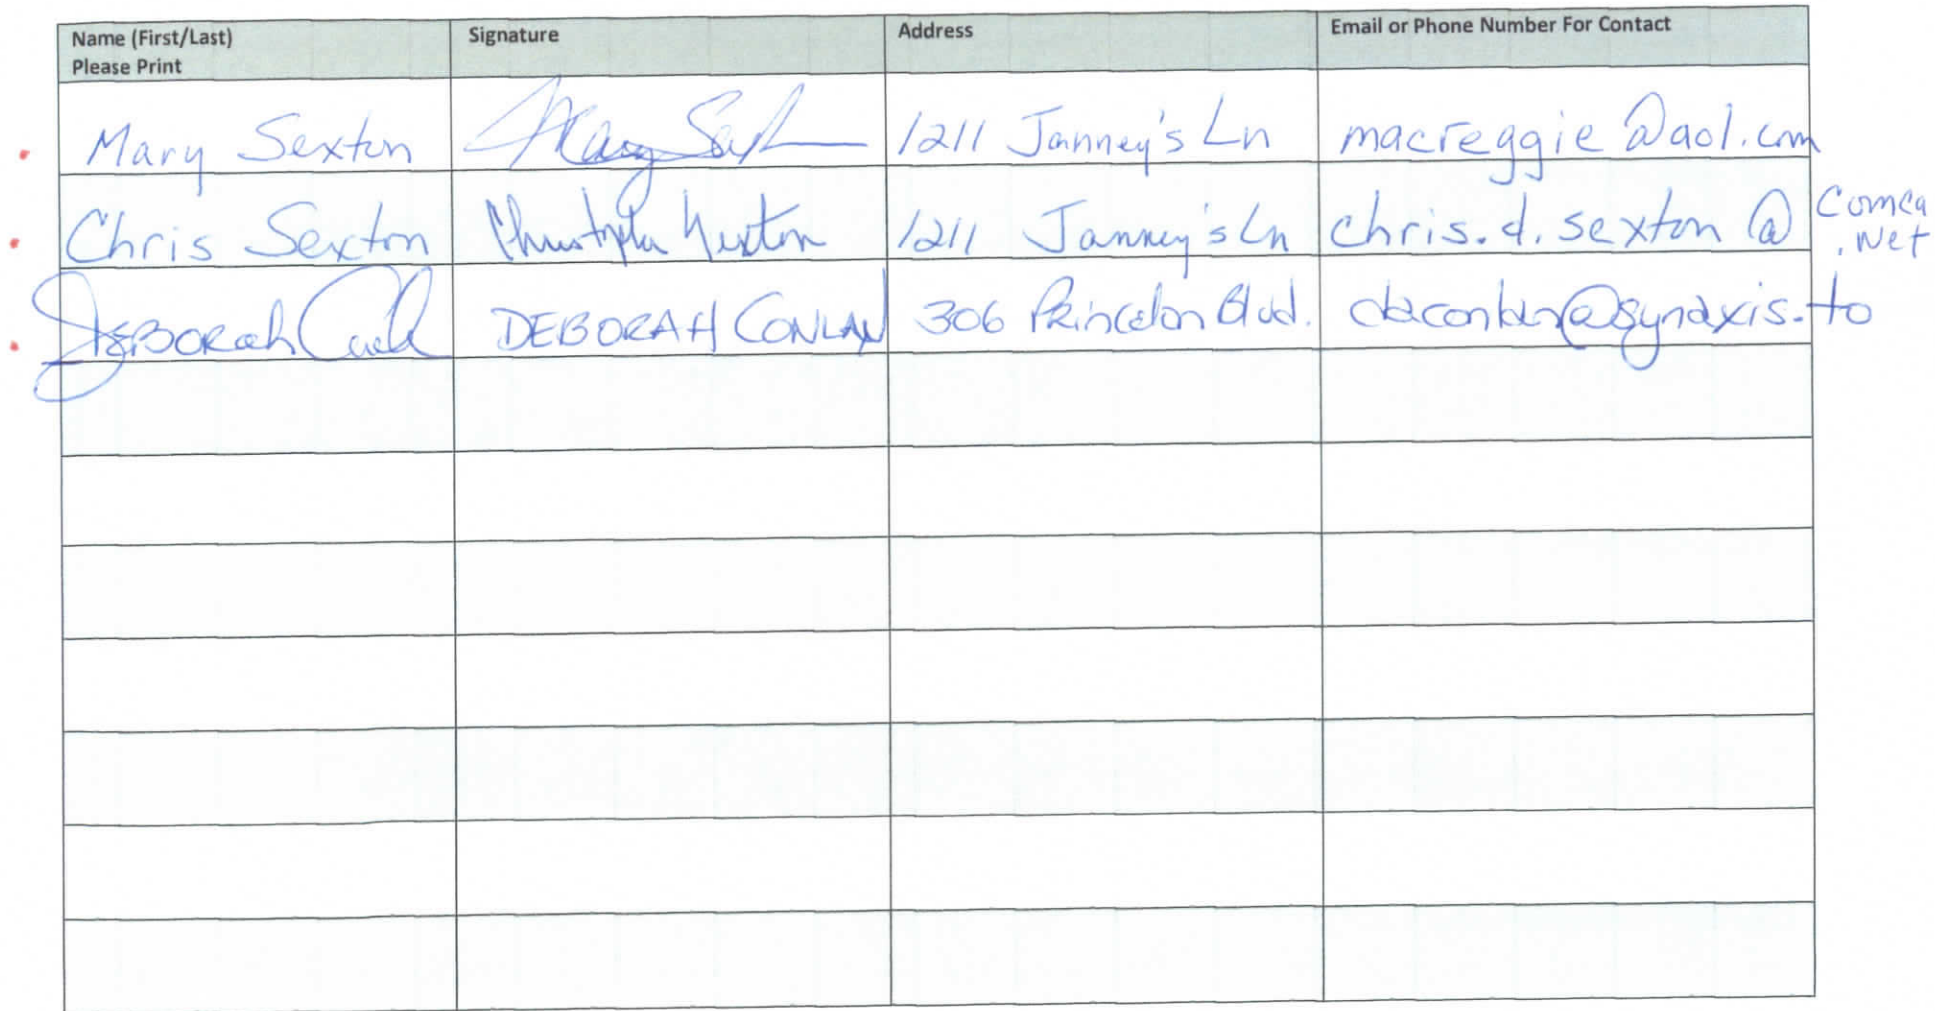 Name (First/Last) Signature Address Email or Phone Number For Contact
Please Print
Mary Sexton Mary Sexton 1211 Janney's Ln macreggie@aol.com
Chris Sexton Christopher Sexton 1211 Janney's Ln chris.d.sexton@ Comca
.Net
DEBORAH DEBORAH CONLAN 306 Princeton Blvd. daconlan@synaxis.to